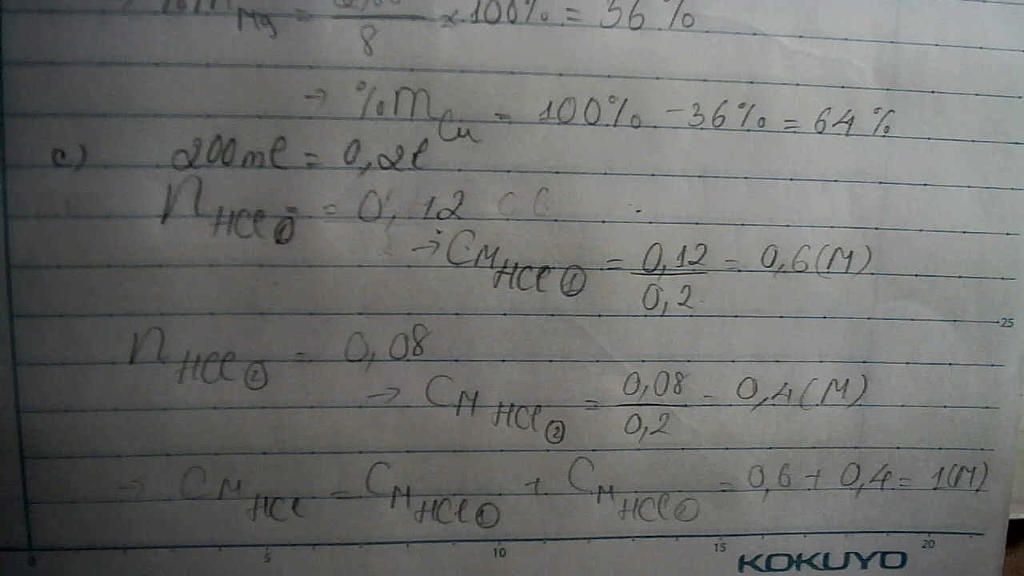 Mg = / 8 x 100% = 36%
→ %m Cu = 100% - 36% = 64%
c) 200ml = 0,2l
n HCl ① = 0,12
→ C M HCl ① = 0,12 / 0,2 = 0,6(M)
25
n HCl ② = 0,08
→ C M HCl ② = 0,08 / 0,2 = 0,4(M)
→ C M HCl = C M HCl ① + C M HCl ② = 0,6 + 0,4 = 1(M)
0 5 10 15 20
KOKUYO